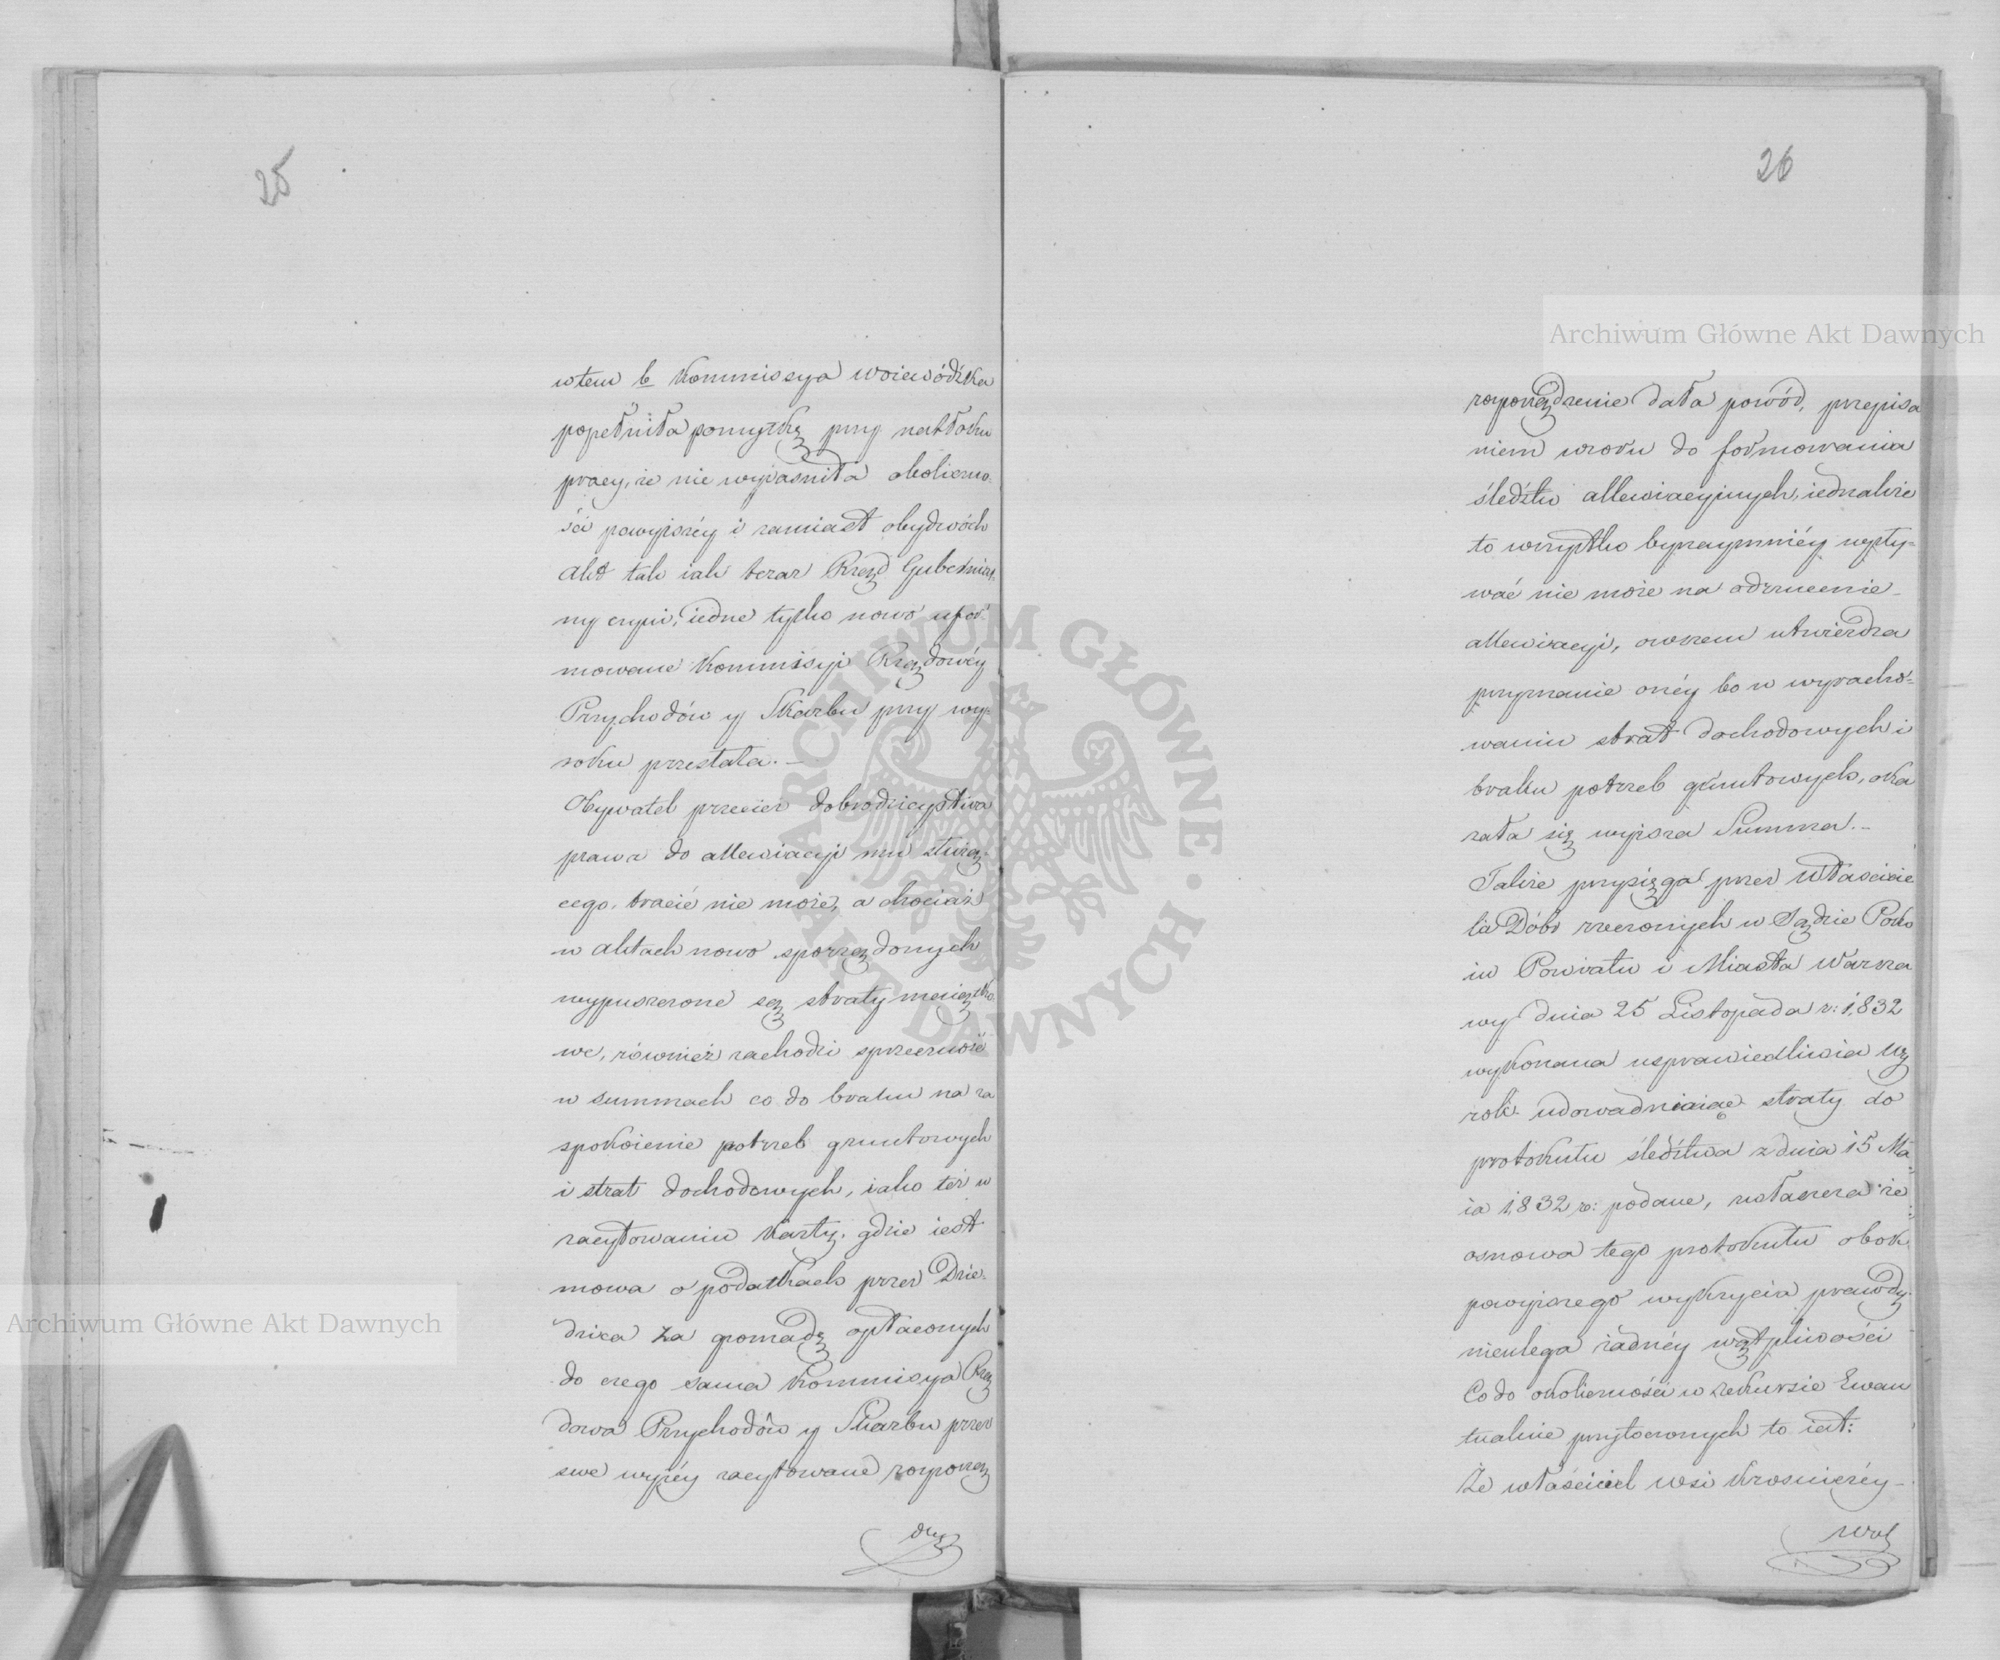 25
wtem b Kommissya woiewódzka
popełniła pomyłkę przy natłoku
pracy, że nie wyiasniła okoliczno
ści powyższéy i zamiast obydwóch
Akt tak iak teraz Rząd Gubernial,
ny czyni, iedne tylko nowo ufor-
mowane Kommisyi Rządowéy
Przychodów y Skarbu przy wy-
roku przesłała.
Obywatel przecież dobrodzieystwa
prawa do allewiacyi mu służą-
cego, tracić nie może, a chociaż
w aktach nowo sporządzonych
wypuszczone są straty maiątko
we, również zachodzi sprzeczność
w summach co do braku na za
spokoienie potrzeb gruntowych
i strat dochodowych, iako też w
zacytowaniu Karty, gdzie iest
mowa o podatkach przez Dzie-
dzica za gromadę opłaconych
do czego sama Kommissya Rzą
dowa Przychodów y Skarbu przez
swe wyżéy zacytowane rozporzą
dze
26
rozporządzenie dała powód, przepisa
niem wzoru do formowania
śledztw allewiacyinych, iednakże
to wszystko bynaymniéy wpły-
wać nie może na odrzucenie
allewiacyi, owszem utwierdza
przyznanie onéy bo w wyracho-
waniu strat dochodowych i
braku potrzeb gruntowych, oka
zała się wyższa Summa.
Także przysięga przez Właścicie
la Dóbr rzeczonych w Sądzie Poko
iu Powiatu i Miasta Warsza
wy dnia 25 Listopada r: 1832
wykonana usprawiedliwia wy
rok udowadniaiąc straty do
protokułu śledztwa z dnia 15 Ma-
ia 1832 r: podane, zwłaszcza że
osnowa tego protokułu obok
powyższego wykrycia prawdy
nieulega żadnéy wątpliwości
Co do okoliczności w rekursie Ewen
tualnie przytoczonych to iest:
Że właściciel wsi Krosniczéy
Archiwum Główne Akt Dawnych
Archiwum Główne Akt Dawnych
ARCHIWUM GŁÓWNE AKT DAWNYCH